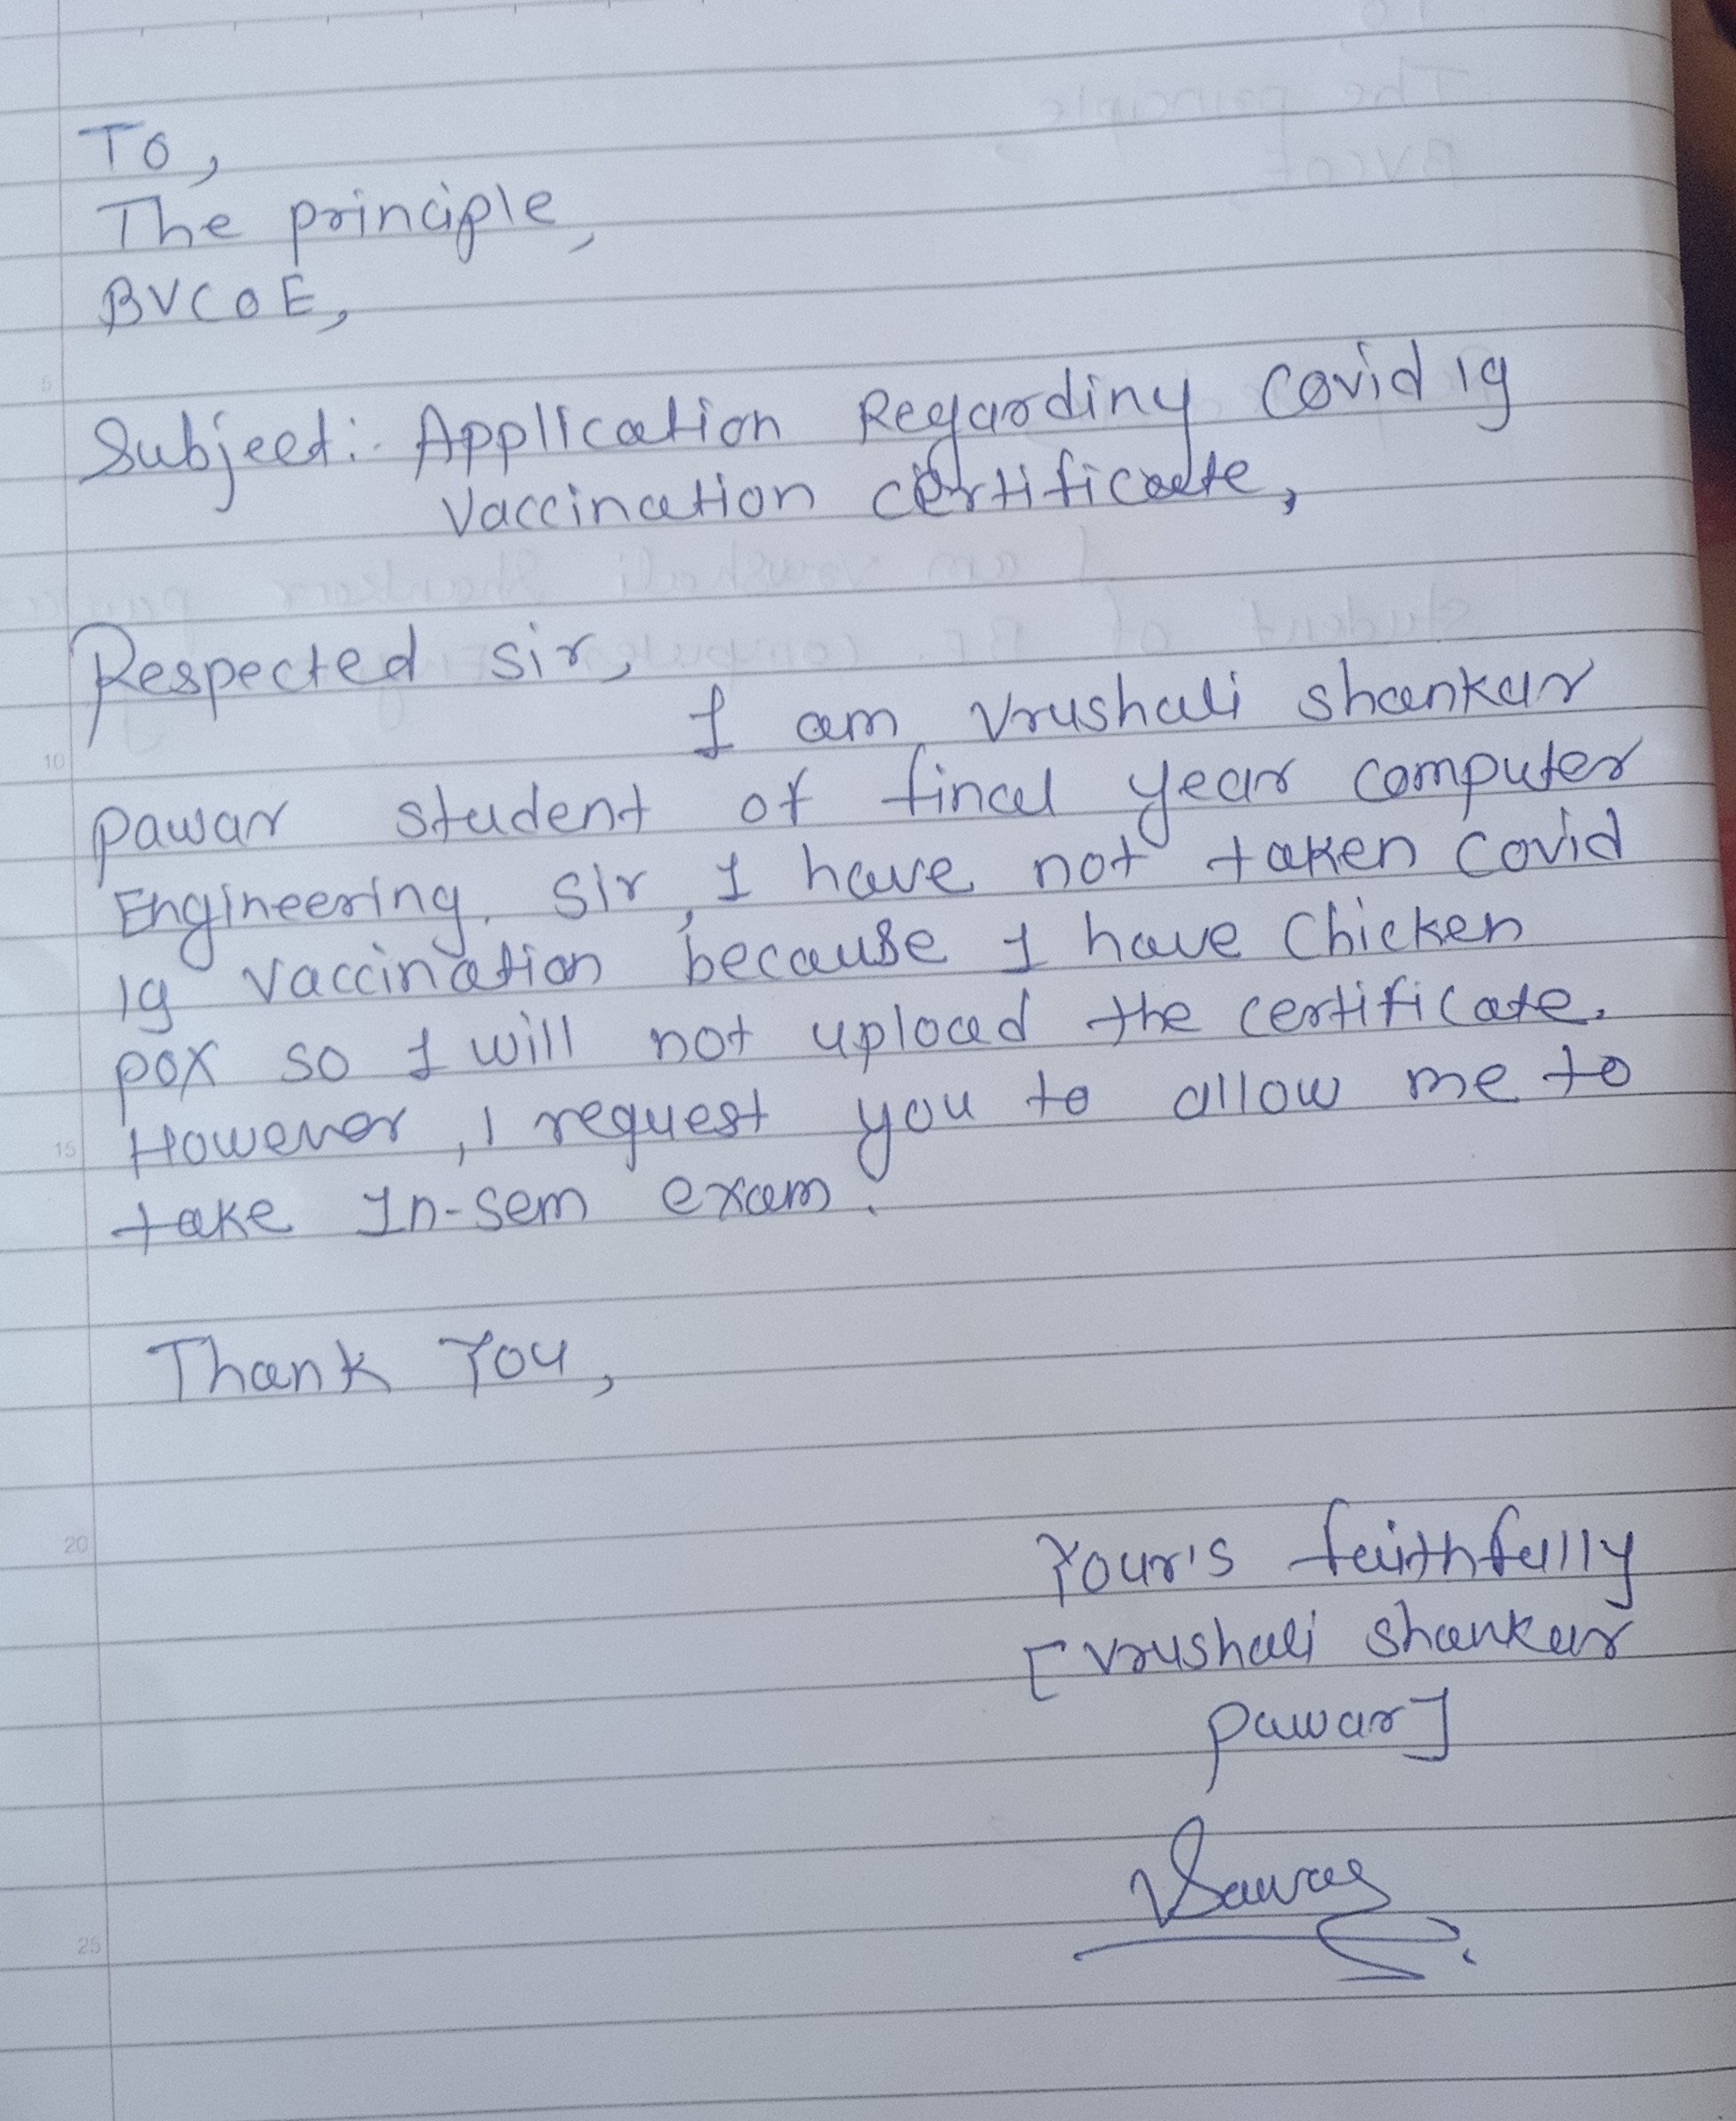 To,
The principle,
BVCOE,
Subject:- Application Regarding Covid 19
Vaccination certificate,
Respected sir,
I am Vrushali shankar
pawar student of final year computer
Engineering. Sir, I have not taken covid
19 vaccination because I have Chicken
pox so I will not upload the certificate.
However, I request you to allow me to
take In-sem exam.
Thank You,
Your's faithfully
[Vrushali shankar
pawar]